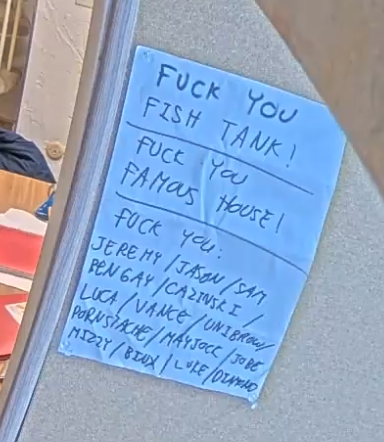 FUCK YOU
FISH TANK!
FUCK YOU
FAMOUS HOUSE!
FUCK YOU:
JEREMY / JASON / SAM
PENGAY / CAZINSKI /
LUCA / VANCE / UNIBROW /
PORNSTACHE / MAYJOCC / JOBE
MIZZY / BINX / LUKE /